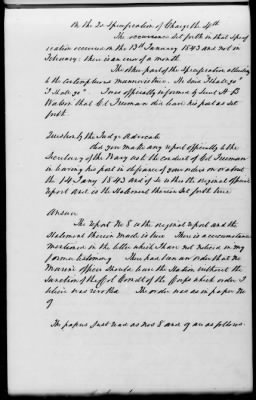 On the 2d Specification of Charge the 4th
The occurrence set forth in that Speci
fication occurred on the 13th January 1843 and not in
February: there is an error of a month.
The other part of the Specification alluding
to the contemptuous manner is true. He said I shall go
I shall go. I was officially informed by Lieut A B
Watson that Col Freeman did leave his post as set
forth
Question by the Judge Advocate
did you make any report officially to the
Secretary of the Navy as to the conduct of Col Freeman
in leaving his post in defiance of your orders on or about
the 14 Jany 1843 and if so is this the original official
report and is the Statement therein set forth true
Answer
The report No 8 is the original report and the
Statement therein made is true. There is a circumstance
mentioned in the letter which I have not noticed in my
former testimony. There had been an order that no
Marine officer should leave the Station without the
sanction of the Col Comdt of the Corps which order I
believe was revoked. The order was as in paper No
9
The papers Just read as nos 8 and 9 are as follows.